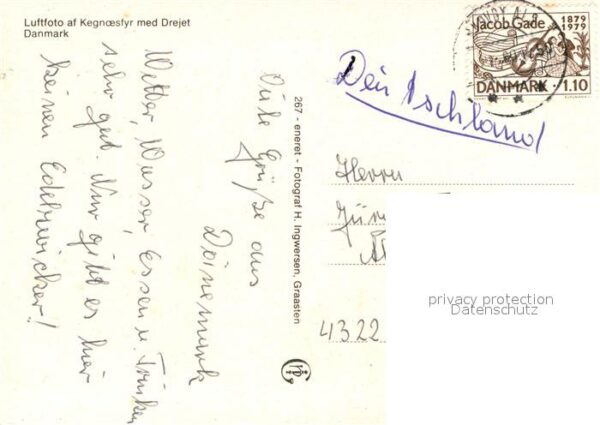 Luftfoto af Kegnæsfyr med Drejet
Danmark
Viele Grüße aus
Dänemark
Wetter, Wasser, Essen u. Trinken
sehr gut. Nur gibt es hier
keinen Edelzwicker!
267 - eneret - Fotograf H. Ingwersen, Graasten
Jacob Gade 1879
1979
DANMARK · 1.10
Deutschland
Herrn
4322
privacy protection
Datenschutz